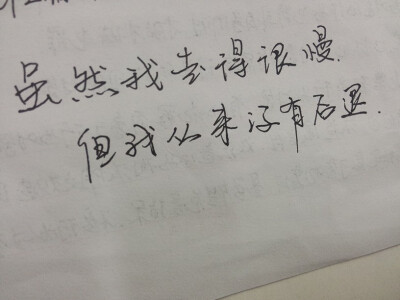 虽然我走得很慢.
但我从来没有后退.